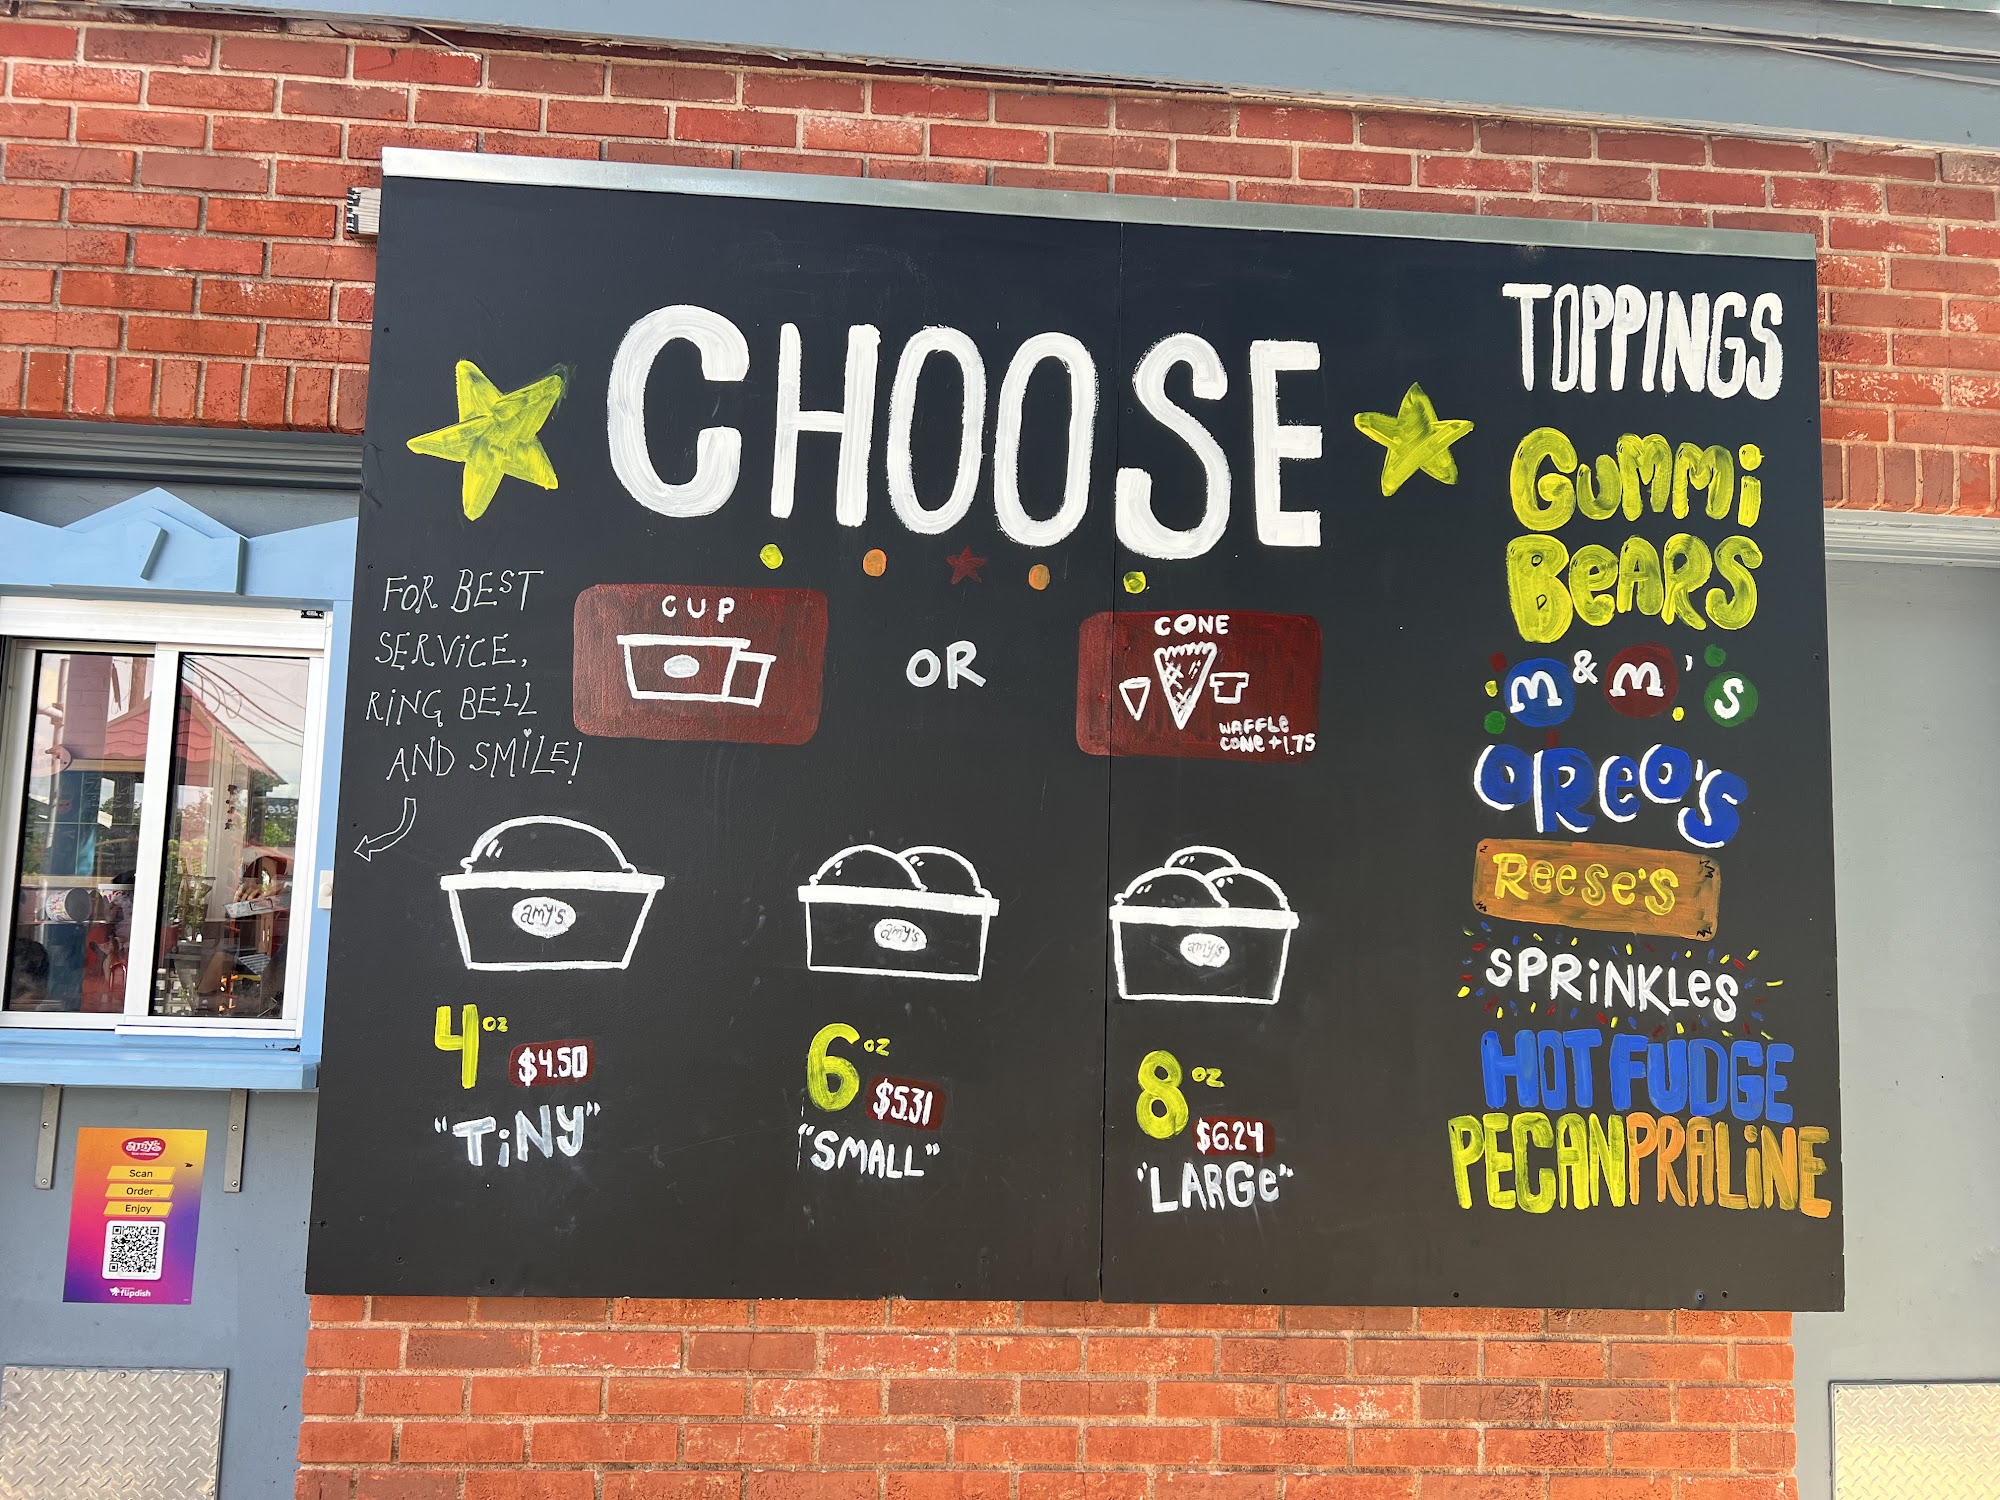 CHOOSE
FOR BEST
SERVICE,
RING BELL
AND SMILE!
CUP
OR
CONE
WAFFLE
CONE +1.75
amy's
amy's
amy's
4 oz
$4.50
"TiNY"
6 oz
$5.31
"SMALL"
8 oz
$6.24
"LARGe"
TOPPINGS
GUMMi
BeARS
M&M'S
OReO'S
Reese's
SPRiNKLes
HOT FUDGE
PECAN PRALiNE
amy's
Scan
Order
Enjoy
flipdish